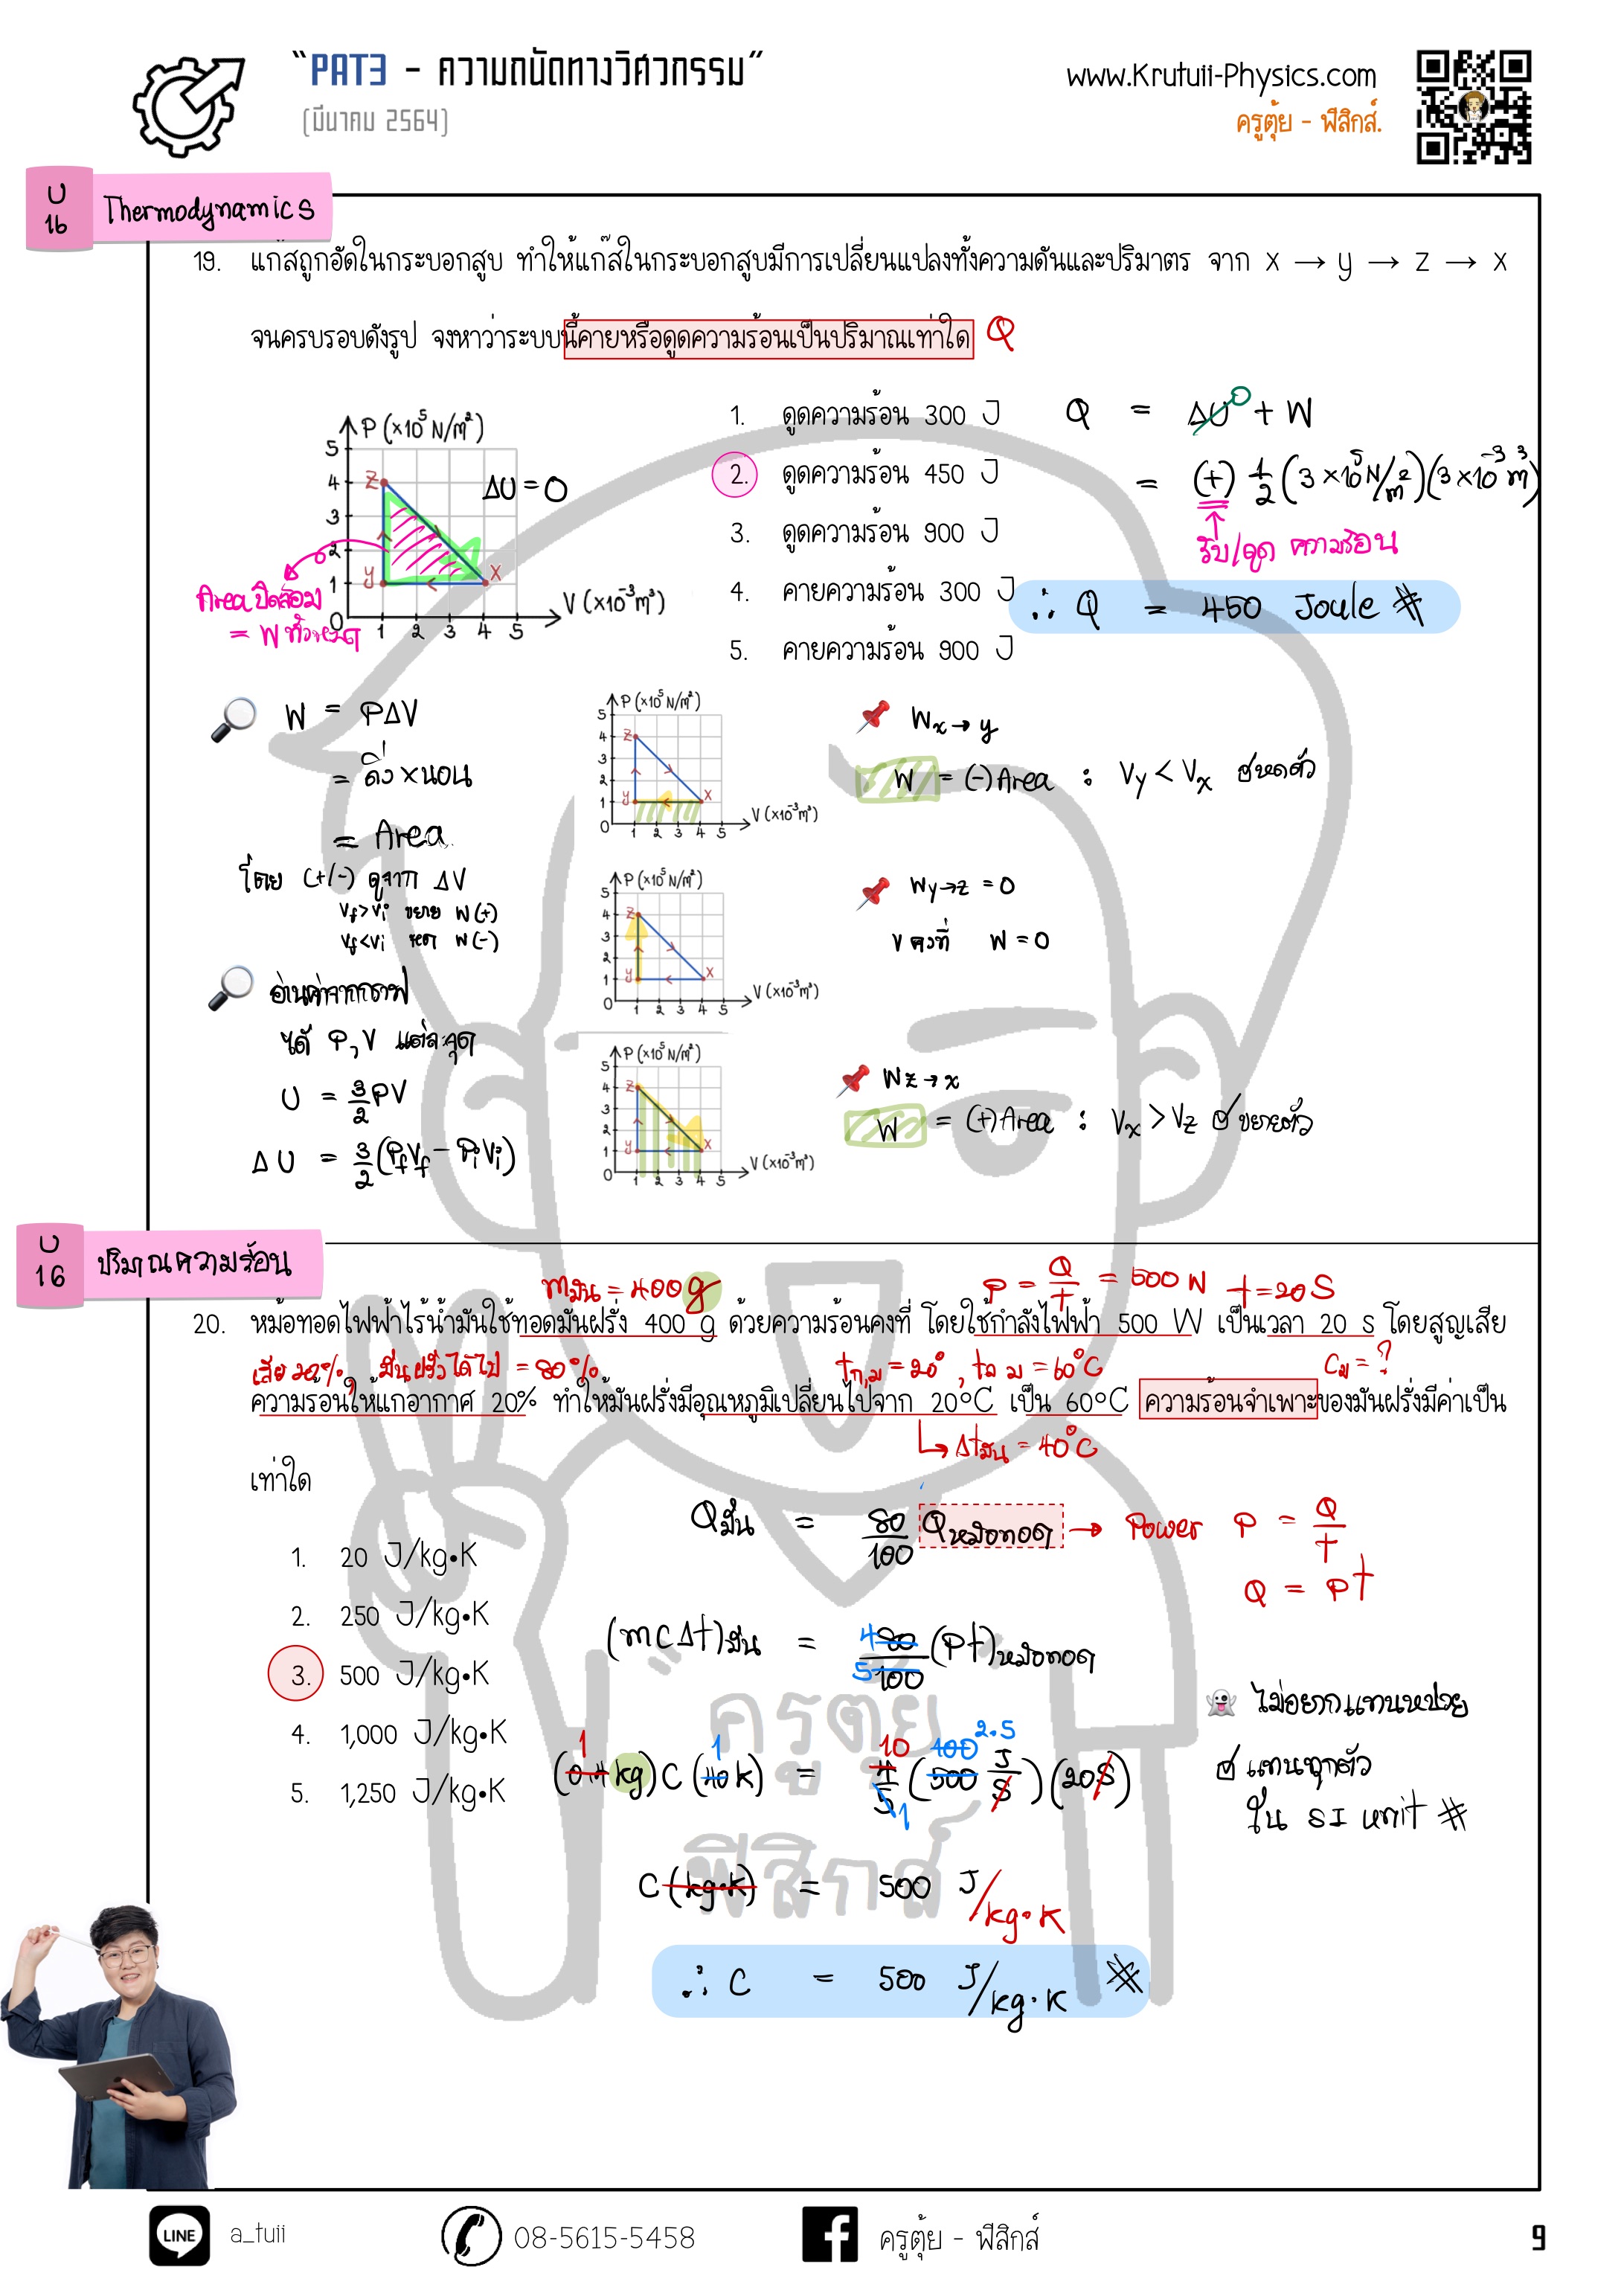 “PAT3 - ความถนัดทางวิศวกรรม”
(มีนาคม 2564)
www.Krutuii-Physics.com
ครูตุ้ย - ฟิสิกส์.
U
16
Thermodynamics
19. แก๊สถูกอัดในกระบอกสูบ ทำให้แก๊สในกระบอกสูบมีการเปลี่ยนแปลงทั้งความดันและปริมาตร จาก x → y → z → x
จนครบรอบดังรูป จงหาว่าระบบนี้คายหรือดูดความร้อนเป็นปริมาณเท่าใด Q
P (×10⁵ N/m²)
5
4 Z ΔU = 0
3
2
1 y X
0 1 2 3 4 5 V (×10⁻³ m³)
Area ปิดล้อม
= W ทั้งหมด
1. ดูดความร้อน 300 J
2. ดูดความร้อน 450 J
3. ดูดความร้อน 900 J
4. คายความร้อน 300 J
5. คายความร้อน 900 J
Q = ΔU⁰ + W
= (+) 1/2 (3 ×10⁵ N/m²)(3 ×10⁻³ m³)
รับ/ดูด ความร้อน
∴ Q = 450 Joule #
W = PΔV
= ดิ่ง × นอน
= Area
โดย (+/-) ดูจาก ΔV
Vf > Vi ขยาย W (+)
Vf < Vi หด W (-)
อ่านค่าจากกราฟ
ได้ P, V แต่ละจุด
U = 3/2 PV
ΔU = 3/2 (PfVf - PiVi)
P (×10⁵ N/m²)
5
4 Z
3
2
1 y X
0 1 2 3 4 5 V (×10⁻³ m³)
Wx→y
W = (-) Area : Vy < Vx หดตัว
P (×10⁵ N/m²)
5
4 Z
3
2
1 y X
0 1 2 3 4 5 V (×10⁻³ m³)
Wy→z = 0
V คงที่ W = 0
P (×10⁵ N/m²)
5
4 Z
3
2
1 y X
0 1 2 3 4 5 V (×10⁻³ m³)
Wz→x
W = (+) Area : Vx > Vz ขยายตัว
U
16
ปริมาณความร้อน
mมัน = 400 g
P = Q/t = 500 W t = 20 S
20. หม้อทอดไฟฟ้าไร้น้ำมันใช้ทอดมันฝรั่ง 400 g ด้วยความร้อนคงที่ โดยใช้กำลังไฟฟ้า 500 W เป็นเวลา 20 s โดยสูญเสีย
เสีย 20%, มันฝรั่งได้ไป = 80%
= 20°, = 60°C
= ?
ความร้อนให้แก่อากาศ 20% ทำให้มันฝรั่งมีอุณหภูมิเปลี่ยนไปจาก 20°C เป็น 60°C ความร้อนจำเพาะของมันฝรั่งมีค่าเป็น
Δtมัน = 40°C
เท่าใด
1. 20 J/kg•K
2. 250 J/kg•K
3. 500 J/kg•K
4. 1,000 J/kg•K
5. 1,250 J/kg•K
Qมัน = 80/100 Qหม้อทอด → Power P = Q/t
Q = Pt
(mcΔt)มัน = 80/100 (Pt)หม้อทอด
4
5
(0.4 kg) C (40 K) = 4/5 (500 J/S)(20 S)
1 1 10 100 2.5 1
ไม่อยากแทนหน่วย
แทนทุกตัว
ใน SI unit #
C (kg·K) = 500 J/kg·K
∴ C = 500 J/kg·K #
“ครูตุ้ย”
ฟิสิกส์
LINE a_tuii
08-5615-5458
ครูตุ้ย - ฟิสิกส์
9